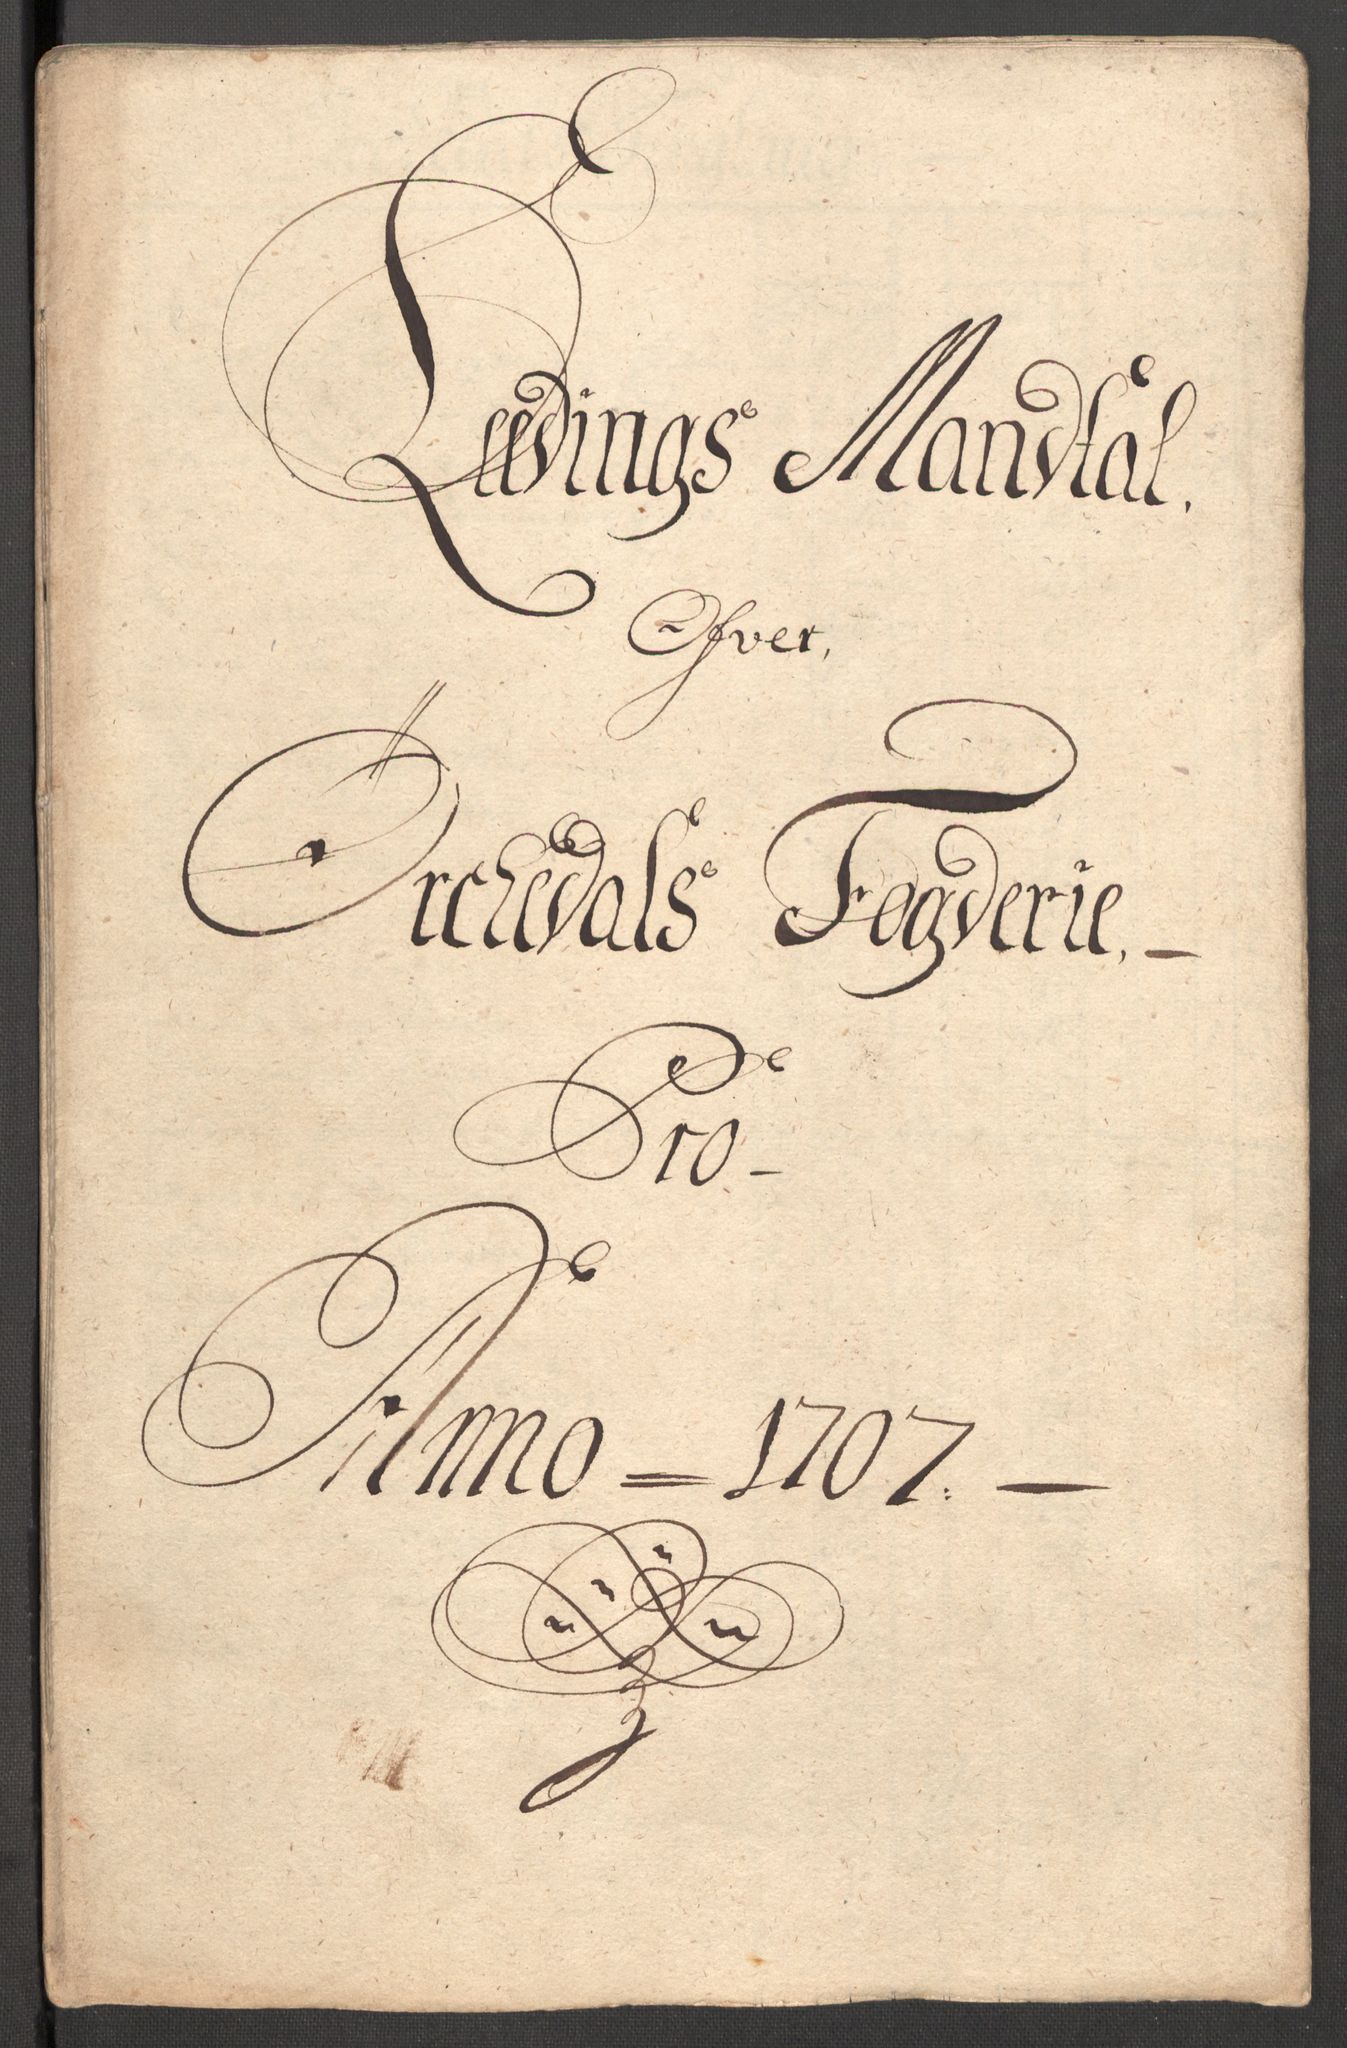 Leedings Mandtal.
Ofver,
Orchedals Fogderie. –
Pro –
Anno = 1707. —